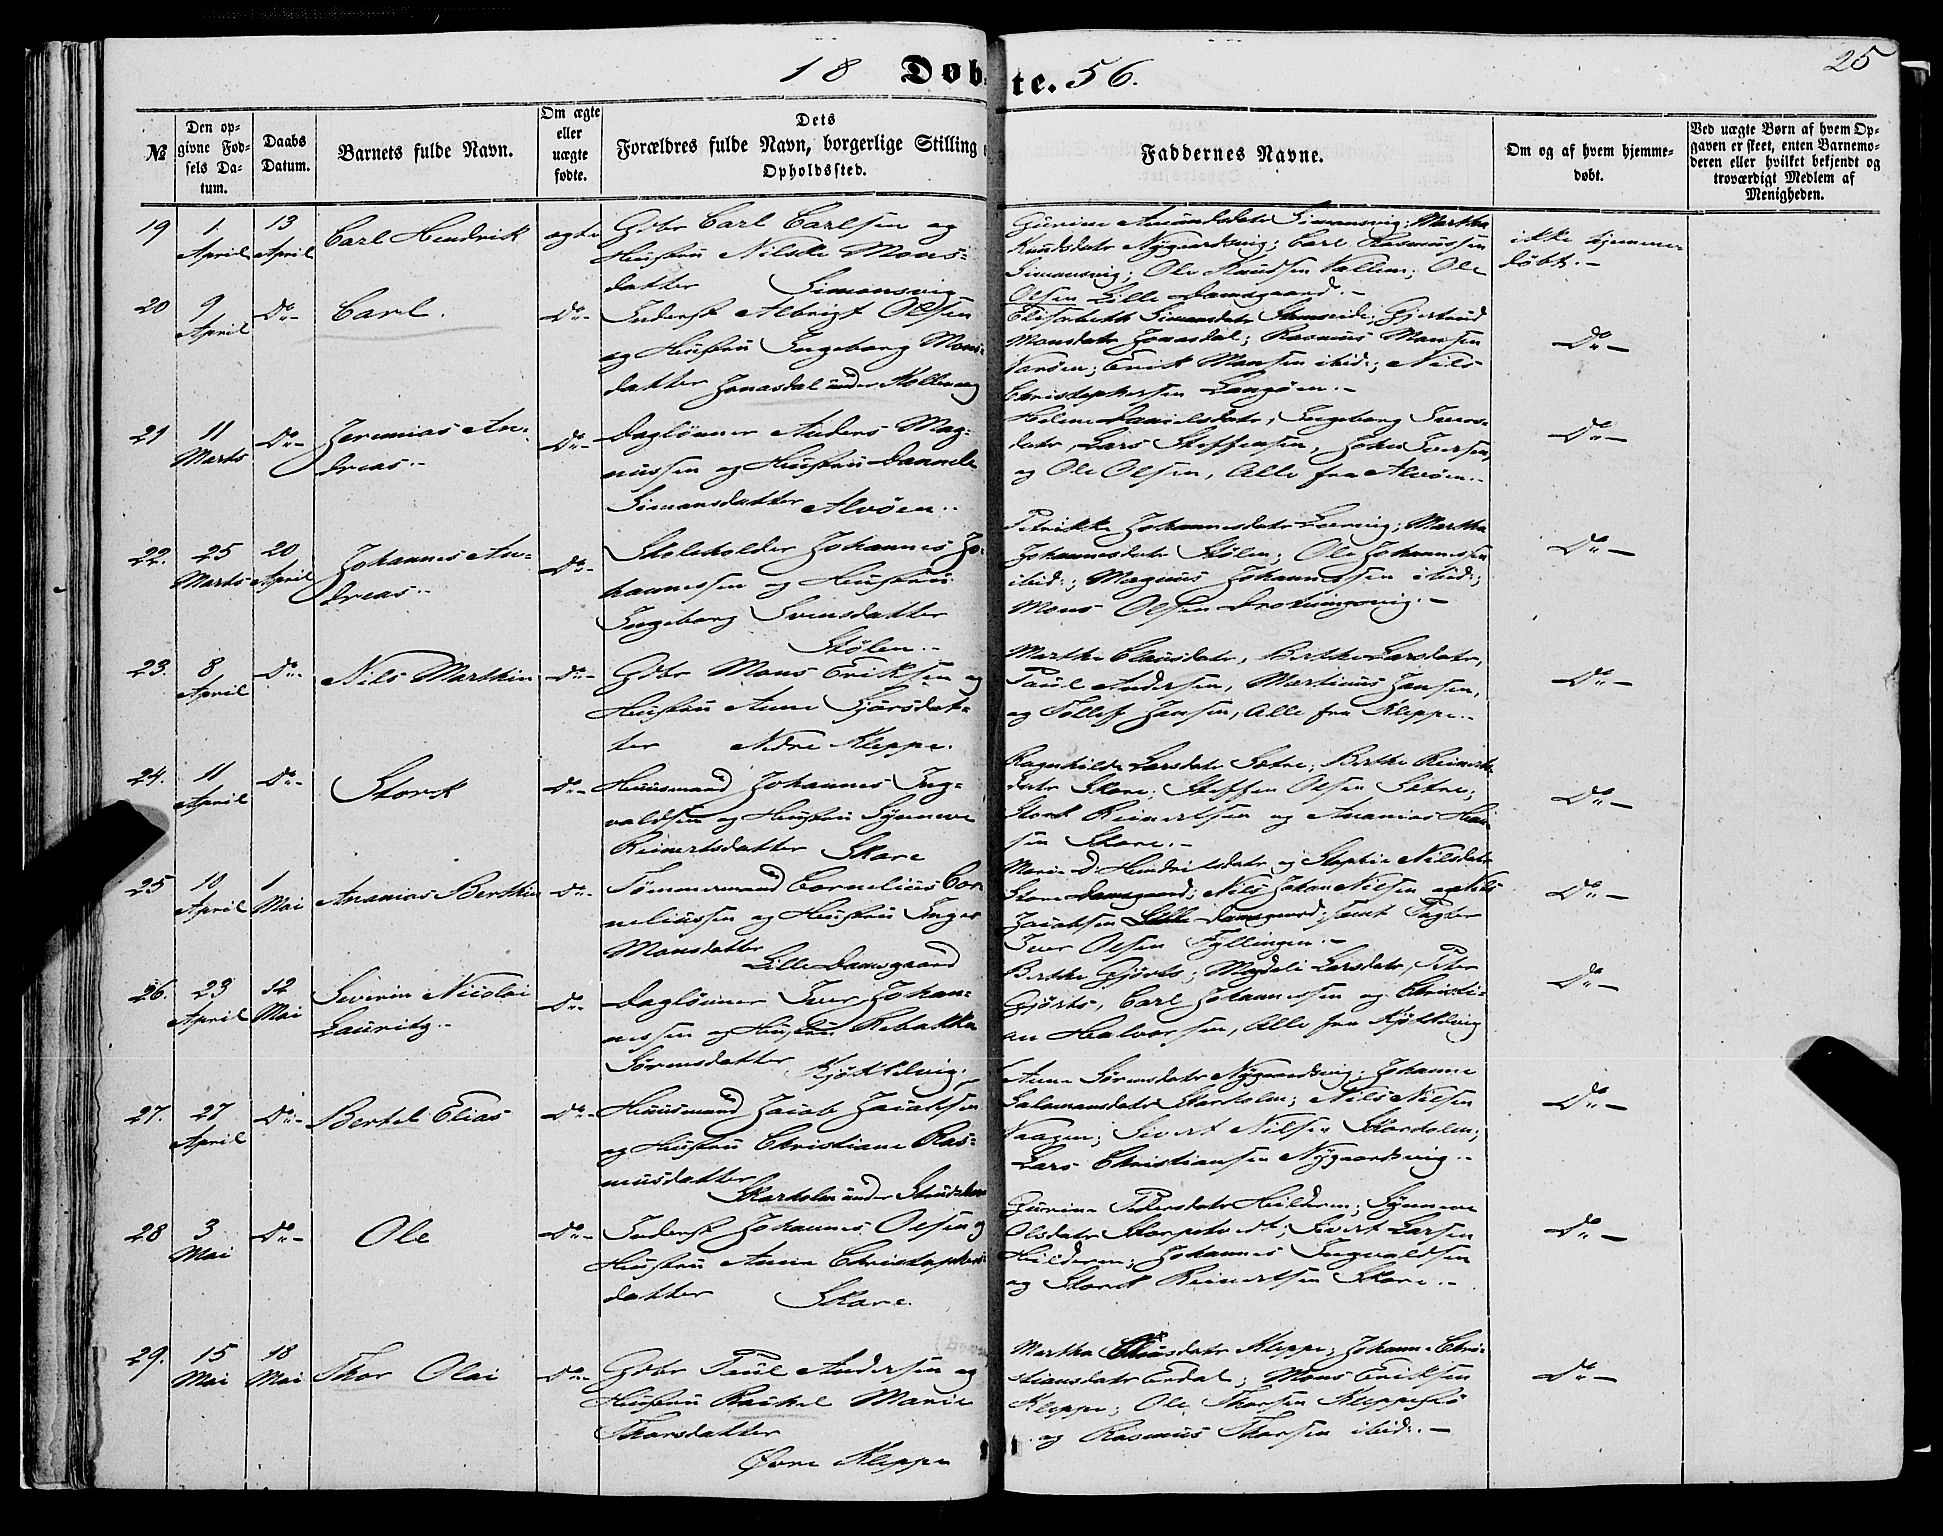 18 Døbte. 56.
25
№
Den opgivne Fødsels Datum.
Daabs Datum.
Barnets fulde Navn.
Om ægte eller uægte fødte.
Dets Forældres fulde Navn, borgerlige Stilling
Opholdssted.
Faddernes Navne.
Om og af hvem hjemmedøbt.
Ved uægte Børn af hvem Opgaven er skeet, enten Barnemoderen eller hvilket bekjendt og troværdigt Medlem af Menigheden.
19 1 April 13 April Carl Hendrik ægte
Gdbr Carl Carlsen og
Hustru Nilske Mons-
datter Simonsvig
Gurine Amundsdatr Simonsvig; Martha
Knudsdatr Nygaardsvig; Carl Rasmussen
Simonsvig; Ole Knudsen Vallem; Ole
Olsen Lille Damsgaard.-
ikke hjemme-
døbt.-
20 9 April Do- Carl. Do-
Inderst Albrigt Olsen
og Hustru Ingeborg Mons-
datter Jonasdal under
Elisabeth Simonsdatr; Gjertrud
Monsdatr Jonasdal; Rasmus Monsen
Erik Monsen ibid:; Nils
Christophersen Langøen.-
Do-
21 11 Marts Do- Jeremias An-
dreas.- Do-
Daglønner Anders Mag-
nussen og Hustru
Simonsdatter Alvøen.-
Helene Danielsdatr, Ingeborg Ivers-
datr, Lars Steffensen, Johan Iversen,
og Ole Olsen, Alle fra Alvøen.-
Do-
22. 25 Marts 20 April Johannes An-
dreas.- Do-
Skoleholder Johannes Jo-
hannessen og Hustru
Ingeborg Svensdatter
Stølen.-
Petrikke Johannesdatr; Martha
Johannesdatr Stølen; Ole Johannessen
ibid:; Magnus Johannessen ibid:;
Mons Olsen Drotningsvig.-
Do-
23. 8 April Do- Nils Marthin Do-
Gdbr Mons Eriksen og
Hustru Anne Gjørsdat-
ter Nedre Kleppe.
Martha Clausdatr, Berthe Larsdatr,
Paul Andersen, Martinus Jansen,
og Tollef Jansen, Alle fra Kleppe.-
Do-
24. 11 April Do- Stork Do-
Huusmand Johannes Ing-
valdsen og Hustru Synneve
Reinertsdatter Skare
Ragnhilde Larsdatr Sætre; Birthe Reinerts-
datr Skare; Steffen Olsen Sætre;
Stork Reinertsen og Ananias Han-
sen Skare.-
Do-
25 10 April 1 Mai Ananias Berthin Do-
Tømmermand Cornelius Cor-
neliussen og Hustru Inger
Monsdatter
Lille Damsgaard
Marie D: Hendriksdatr og Sophie Nilsdatr
Store Damsgaard; Nils Johan Nilsen og Nils
Jacobsen Lille Damsgaard; samt Pagter
Iver Olsen Fyllingen.-
Do-
26. 23 April 12 Mai Severin Nicolai
Lauritz.- Do-
Daglønner Iver Johan-
nessen og Hustru Rebekka
Sørensdatter Kjøkkelvig.
Berthe Gjørts; Magdeli Larsdatr, Peter
Gjørts, Carl Johannessen og Christi-
an Halvorsen, Alle fra Kjøkkelvig
Do-
27. 27 April Do- Bertel Elias Do-
Huusmand Jacob Jacobsen
og Hustru Christiane Ras-
musdatter
Skarholm under
Anne Sørensdatr Nygaardsvig; Johanne
Salamonsdatr Skarholm; Nils Nilsen
Vaagen; Sivert Nilsen Skarholm;
Lars Christiansen Nygaardsvig.-
Do-
28 3 Mai Do- Ole Do-
Inderst Johannes Olsen og
Hustru Anne Christophers-
datter Skare.
Gurine Pedersdatr Hilderen; Synneve
Olsdatr; Sivert Larsen
Hilderen; Johannes Ingvaldsen
og Stork Reinertsen Skare.-
Do-
29. 15 Mai 18 Mai Thor Olai Do-
Gdbr Paul Andersen og
Hustru Rachel Marie
Thorsdatter
Øvre Kleppe
Martha Clausdatr Kleppe; Johanne Chri-
stiansdatr Erdal; Mons Eriksen
Kleppe; Ole Thorsen Kleppesø
og Rasmus Thorsen ibid:.-
Do-